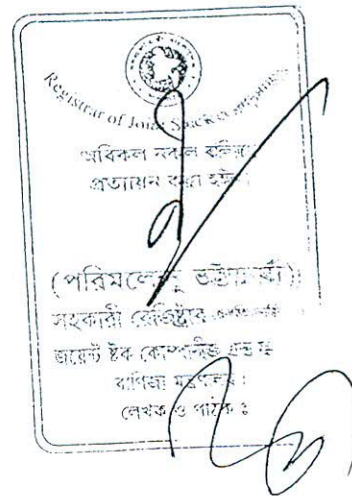 Registrar of Joint Stock
অবিকল নকল বলিয়া
প্রত্যায়ন করা হইল
(পরিমলেন্দু ভট্টাচার্য্য)
সহকারী রেজিষ্ট্রার
জয়েন্ট ষ্টক কোম্পানীজ এন্ড
বাণিজ্য মন্ত্রণালয়।
লেখক ও পাঠক ঃ